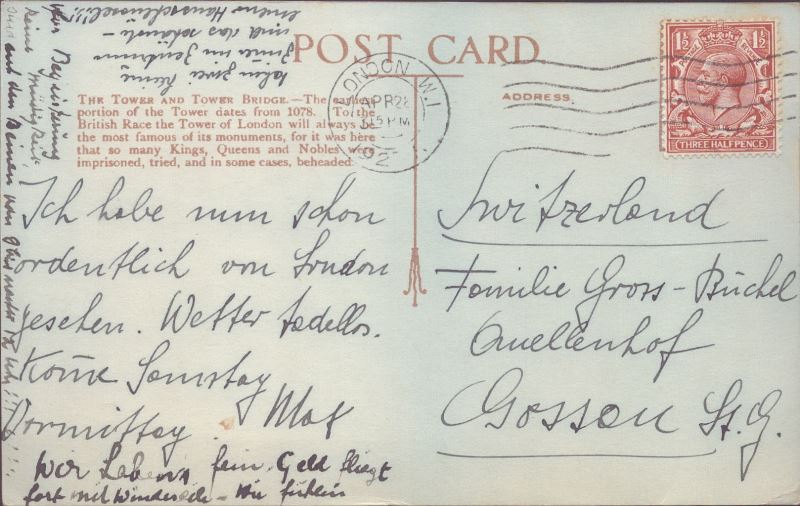 POST CARD
THE TOWER AND TOWER BRIDGE.—The earliest
portion of the Tower dates from 1078. (To the
British Race the Tower of London will always be
the most famous of its monuments, for it was here
that so many Kings, Queens and Nobles were
imprisoned, tried, and in some cases, beheaded
ADDRESS.
LONDON. W.1
APR 28
PM
1½ 1½
THREE HALFPENCE
Ich habe nun schon
ordentlich von London
gesehen. Wetter tadellos.
Komme Samstag
Vormittag. Max
Wir haben's fein, Geld fliegt
fort mit Windeseile – Wir fühlen
Vor Begeisterung
keine Müdigkeit!
und das schönste –
Switzerland
Familie Gross-Büchel
Quellenhof
Gossau St. G.